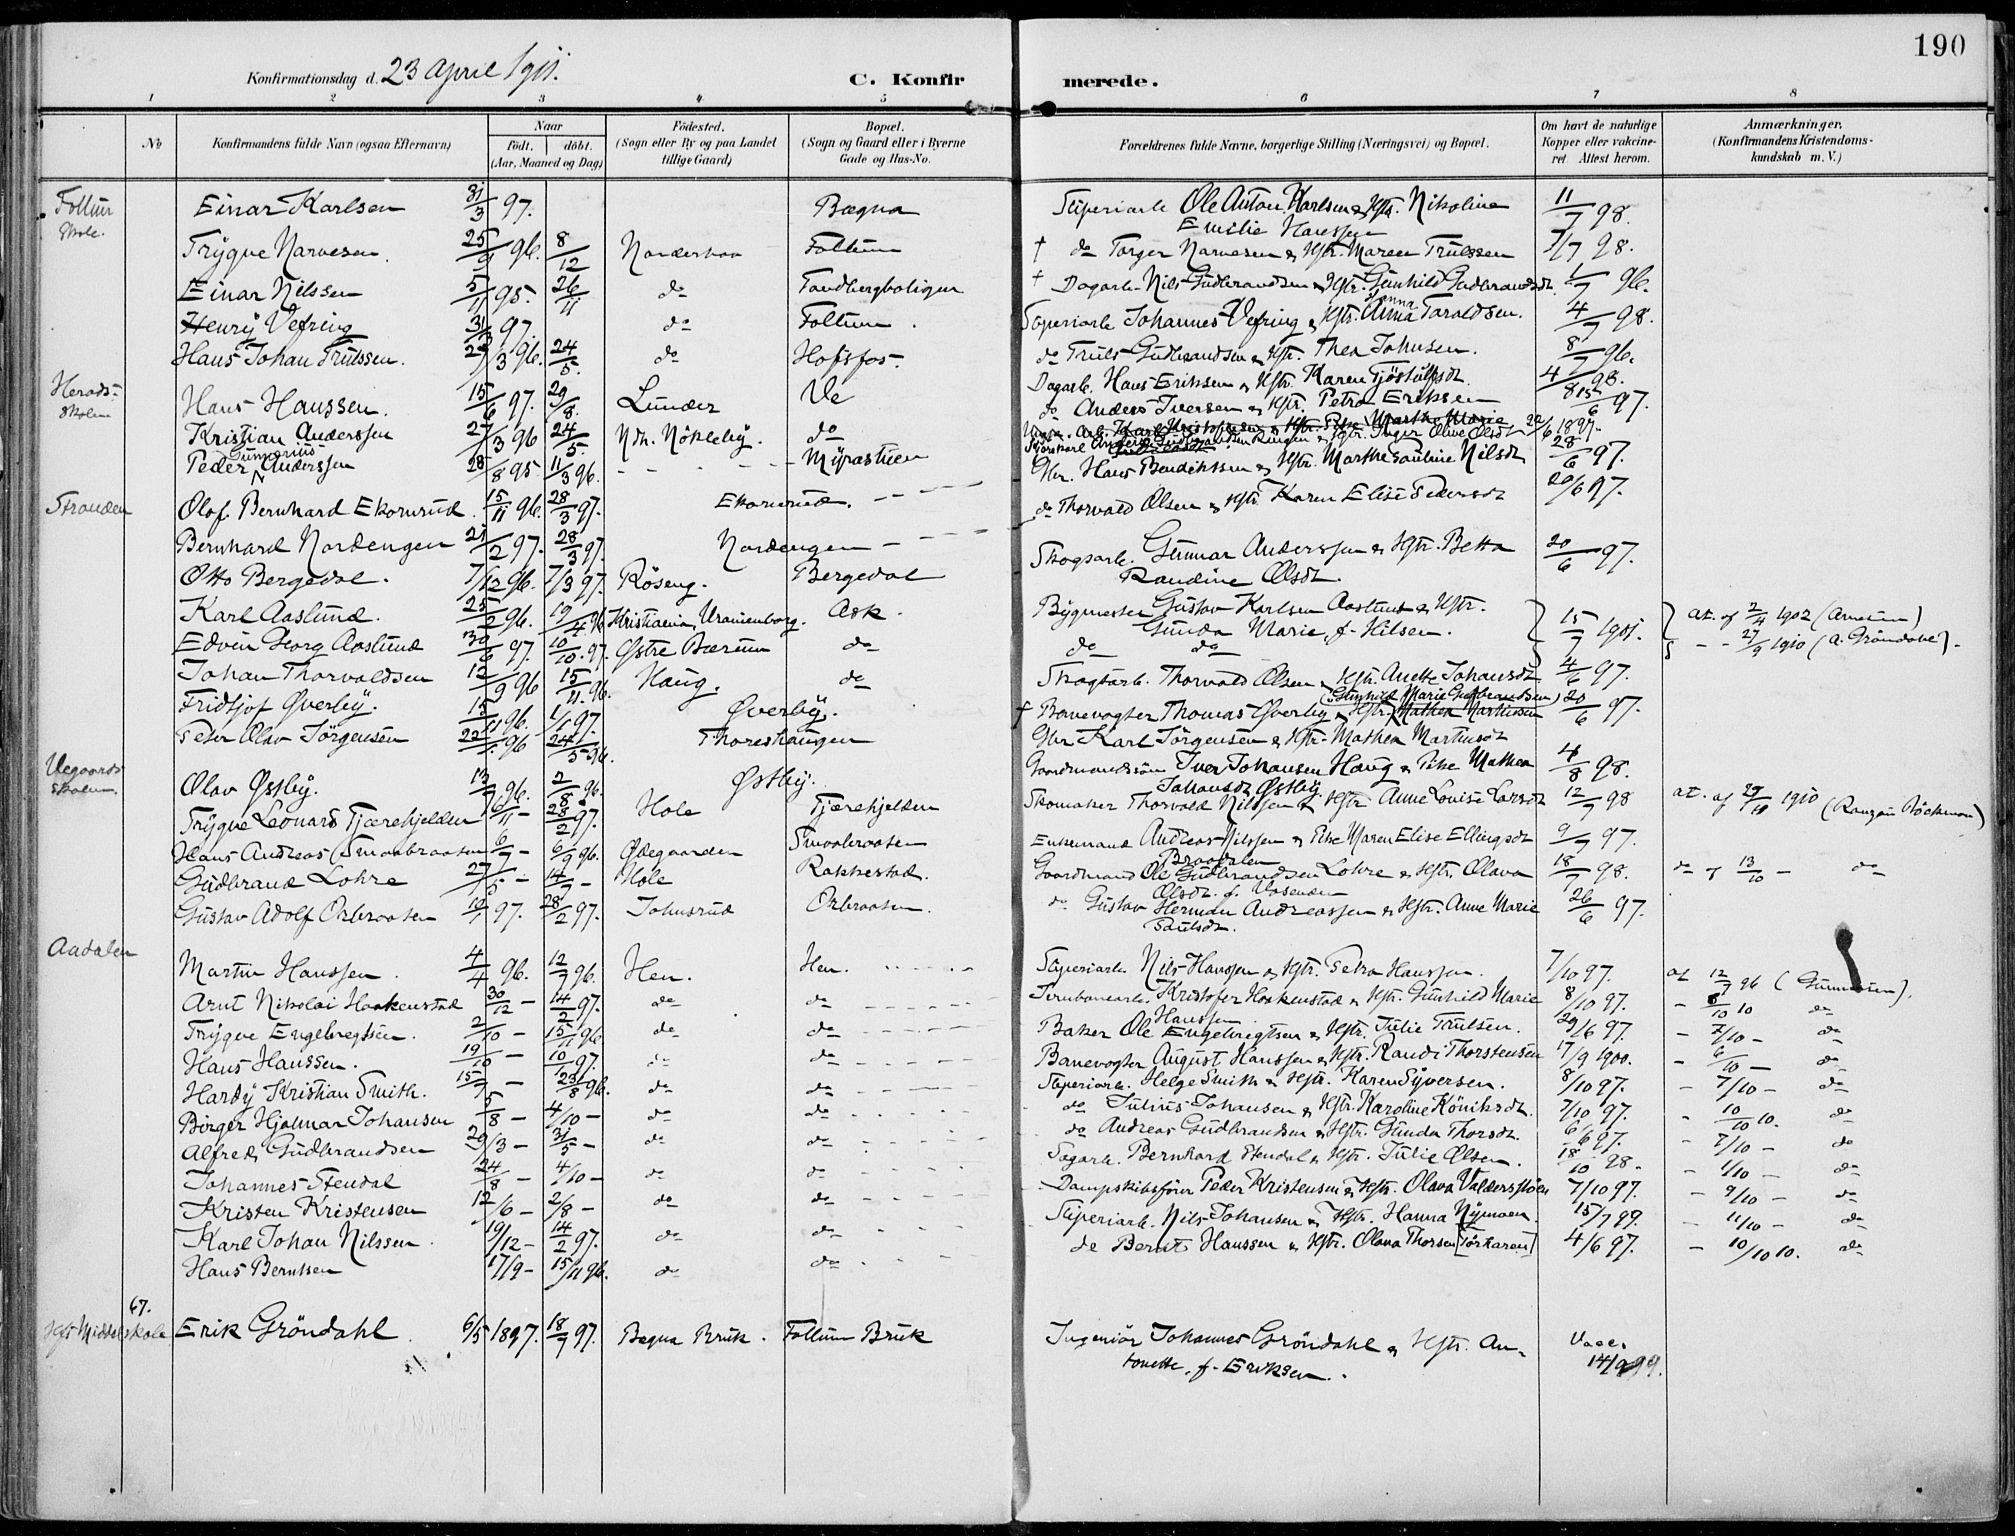 190
Konfirmationsdag d. 23 April 1911.
C. Konfirmerede.
1 2 3 4 5 6 7 8
No
Konfirmandens fulde Navn (ogsaa Efternavn)
Naar
født. døbt.
(Aar, Maaned og Dag)
Fødested.
(Sogn eller By og paa Landet
tillige Gaard)
Bopæl.
(Sogn og Gaard eller i Byerne
Gade og Hus-No.
Forældrenes fulde Navne, borgerlige Stilling (Næringsvei) og Bopæl.
Om havt de naturlige
Kopper eller vakcine-
ret Attest herom.
Anmærkninger.
(Konfirmandens Kristendoms-
kundskab m. V.)
Follum Skole.
Einar Karlsen 31/3 97. Bægna Sliperiarb. Ole Anton Karlsen & Hstr. Nikoline Emilie Hanssen 11/7 98.
Trygve Narvesen 25/9 96. 8/12 Norderhov Follum † do Torger Narvesen & Hstr. Maren Trulssen 7/7 98.
Einar Nilssen 5/11 95. 26/11 do Tandbergboligen † Dagarb. Nils Gudbrandsen & Hstr. Gunhild Gudbrandsdt. 1/7 96.
Henry Vefring 31/3 97. do Follum. Sliperiarb Johannes Vefring & Hstr. Anna Taraldsen. 4/7 98.
Hans Johan Trulssen. 27/3 96. 24/5. do Hofsfos. do Truls Gudbrandsen & Hstr. Thea Johnsen. 8/7 96.
Herads-skolen
Hans Hanssen. 15/6 97. 29/8. Lunder Ve Dagarb. Hans Eriksen & Hstr. Karen Tjöstulfsdt. 4/8 98.
Kristian Anderssen 27/3 96 24/5. Ndr. Nökleby. do do Anders Iversen & Hstr. Petra Eriksen 15/6 97.
Peder Gunnerius Anderssen 28/8 95 11/3 96. Myrastuen Inger Oline Olsdt 22/6 1897.
Gbr. Hans Bendiksen & Hstr. Marthe Pauline Nilsdt 28/6 97.
Stranden
Olaf Bernhard Ekornrud. 15/11 96. 28/3 97. Ekornrud. do Thorvald Olsen & Hstr Karen Elise Pedersdt 20/6 97.
Bernhard Nordengen 21/2 97. 28/3 97. Nordengen
Otto Bergedal. 7/12 96. 7/3 97. Röseng. Bergedal Skogsarb. Gunnar Anderssen & Hstr. Betta Randine Olsdt. 20/6 97.
Karl Aaslund. 25/2 96. 19/4 96 Kristiania, Uranienborg. Ask. Bygmester Gustav Karlsen Aaslund & Hstr. Gunda Marie, f. Nilsen. 15/7 1901. at. af 2/4 1902
Edvin Georg Aaslund 30/6 97. 10/10. 97. Østre Bærum do do do - - 27/9 1910 (A. Gröndahl).
Johan Thorvaldsen 12/9 96 15/11. 96. Haug. do Skogsarb. Thorvald Olsen & Hstr. Anette Johansdt 4/6 97.
Fridtjof Øverby. 15/11 96. 1/1 97. Øverby. † Banevogter Thomas Øverby & Hstr. (Gunhild Marie Gudbrandsen) Mathea Martinsen 20/6 97.
Peter Olav Jörgensen 22/1 96 24/5 96. Thoreshaugen Gbr Karl Jörgensen & Hstr. Mathea Martinsdt
Vegaards-skolen.
Olav Østby. 13/7 96. 2/8 96. Østby. Gaardmandssön Iver Johansen Haug & Pike Mathea Johansdt Østby. 4/8 98.
Trygve Leonard Tjærehjelden 6/11 - 28/2 97. Hole Tjærehjelden Skomaker Thorvald Nilssen & Hstr Anne Louise Larsdt 12/7 98 at. af 29/10 1910
Hans Andreas Smaabraaten 6/7 - 6/9 96. Ødegaarden Smaabraaten Enkemand Andreas Nilssen & Pike Maren Elise Ellingsdt Braadalen 9/7 97.
Gudbrand Lohre 27/5 - 14/7 - Hole Rakkestad. Gaardmand Ole Gudbrandsen Lohre & Hstr. Olava Olsdt. f. Vasenden 18/7 98. do af 13/10 - do
Gustav Adolf Orbraaten 12/1 97. 28/2 97. Johnsrud Orbraaten. do Gustav Herman Andreassen & Hstr. Anne Marie Paulsdt. 26/6 97.
Aadalen
Martin Hanssen. 4/4 96. 12/7 96. Hen. Hen. Sliperiarb. Nils Hanssen & Hstr. Petra Hanssen. 7/10 97. at 12/7 96
Arnt Nikolai Haakenstad 30/12 - 14/2 97. do do Jernbanearb. Kristofer Haakenstad & Hstr. Gunhild Marie Hanssen 8/10 97. - 8/10 10 do
Trygve Engebregtsen. 2/10 - 15/11 96 do do Baker Ole Engebregtsen & Hstr. Julie Trulsen. 29/6 97. - 7/10 - do
Hans Hanssen. 19/10 - 10/1 97. do do Banevogter August Hanssen & Hstr. Randi Thorstensen 17/9 1900. - 6/10 - do
Hardy Kristian Smith. 15/7 - 23/8 96. do do Sliperiarb. Helge Smith & Hstr. Karen Syversen. 8/10 97. - 7/10 - do
Birger Hjalmar Johansen 5/8 - 4/10 - do do do Julius Johansen & Hstr. Karoline Köniksdt. 7/10 97. - 10/10 10. do
Alfred Gudbrandsen 29/3 - 31/5 - do do do Andreas Gudbrandsen & Hstr. Gunda Thorsdt. 6/6 97. - 7/10 - do
Johannes Stendal 24/8 - 4/10 - do do Sagarb. Bernhard Stendal & Hstr. Julie Olsen. 18/10 98. - 1/10 - do
Kristen Kristensen 12/6 - 2/8 - do do Dampskibsförer Peder Kristensen & Hstr. Olava Valdersstöen 7/10 97. - 9/10 - do
Karl Johan Nilssen. 19/12 - 14/2 97. do do Sliperiarb. Nils Johansen & Hstr. Hanna Nymoen. 15/7 99. - 11/10 - do
Hans Berntsen 17/9 - 15/11 96. do do do Bernt Hanssen & Hstr. Olava Thorsen 4/6 97. - 10/10 10. do
67.
Middelskole Erik Gröndahl. 6/5 1897. 18/7 97. Begna Bruk. Follum Bruk Ingeniör Johannes Gröndahl & Hstr. Antonette, f. Eriksen. 14/9 99.